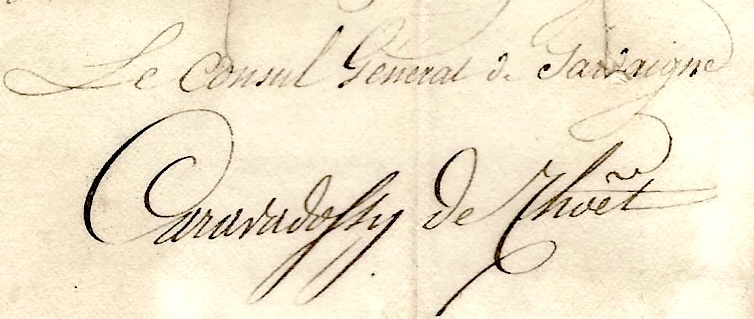 Le Consul Général de Sardaigne
Caravadossy de Thoët